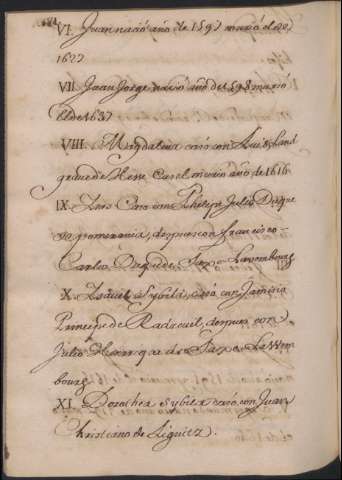 VI. Juan nació año de 1597 murió el de
1627
VII Juan Jorge nació año de 1598 murió
el de 1637
VIII. Magdalena casó con Luis Land
grave de Hesse Casel murio año de 1616
IX. Ana casó con Phelipe Julio Duque
de pomerania, despues con francisco
Carlos Duque de Saxo Lawembourg
X. Isavel Sybila, casó con
Principe de Radzouil, despues con
Julio Henrrique de Saxo Lawem
bourg
XI. Dorothea Sybila casó con Juan
Christiano de Liguitz.